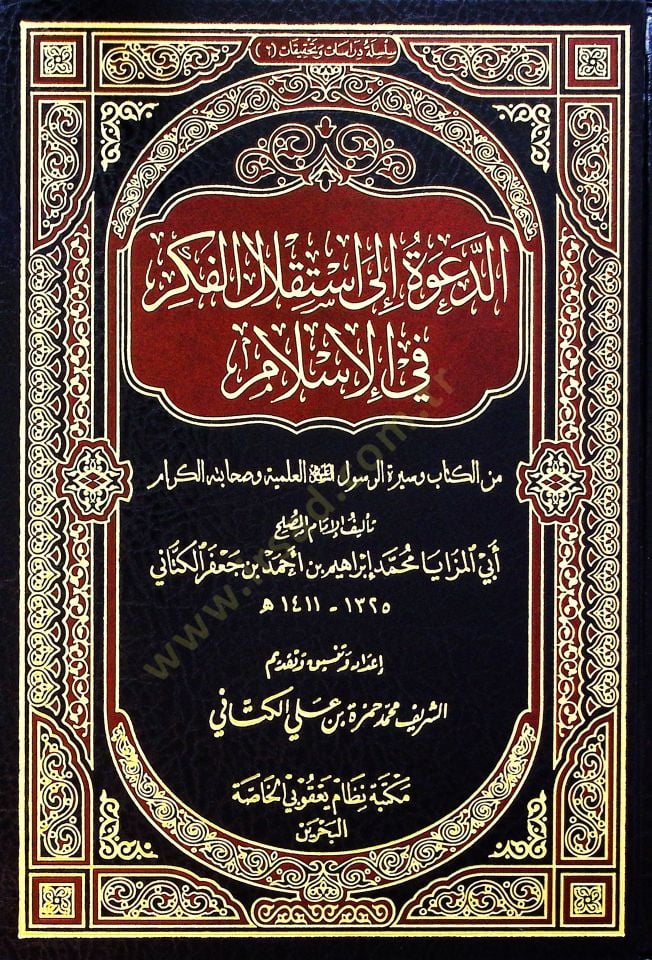 سلسلة دراسات وتحقيقات (٦)
الدعوة إلى استقلال الفكر
في الإسلام
من الكتاب وسيرة الرسول ﷺ العلمية وصحابته الكرام
تأليف الإمام المصلح
أبي المزايا محمد إبراهيم بن أحمد بن جعفر الكتاني
١٣٢٥ - ١٤١١ هـ
إعداد وتنسيق وتقديم
الشريف محمد حمزة بن علي الكتاني
مكتبة نظام يعقوبي الخاصة
البحرين